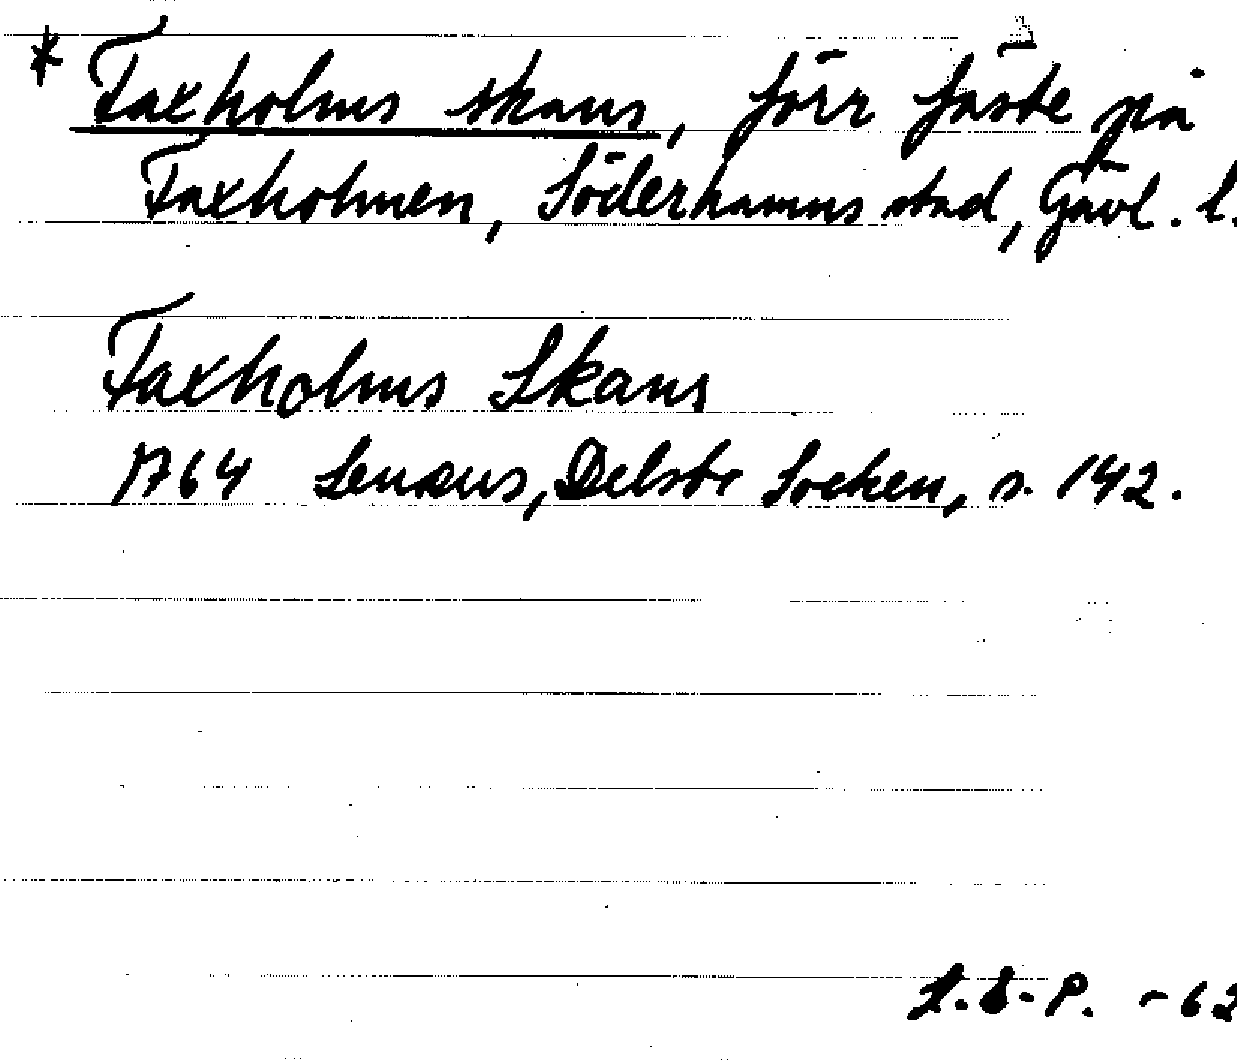 * Faxholms skans, förr fäste på
Faxholmen, Söderhamns stad, Gävl. l.
Faxholms Skans
1764 Lenæus, Delsbo Socken, s. 142.
-62